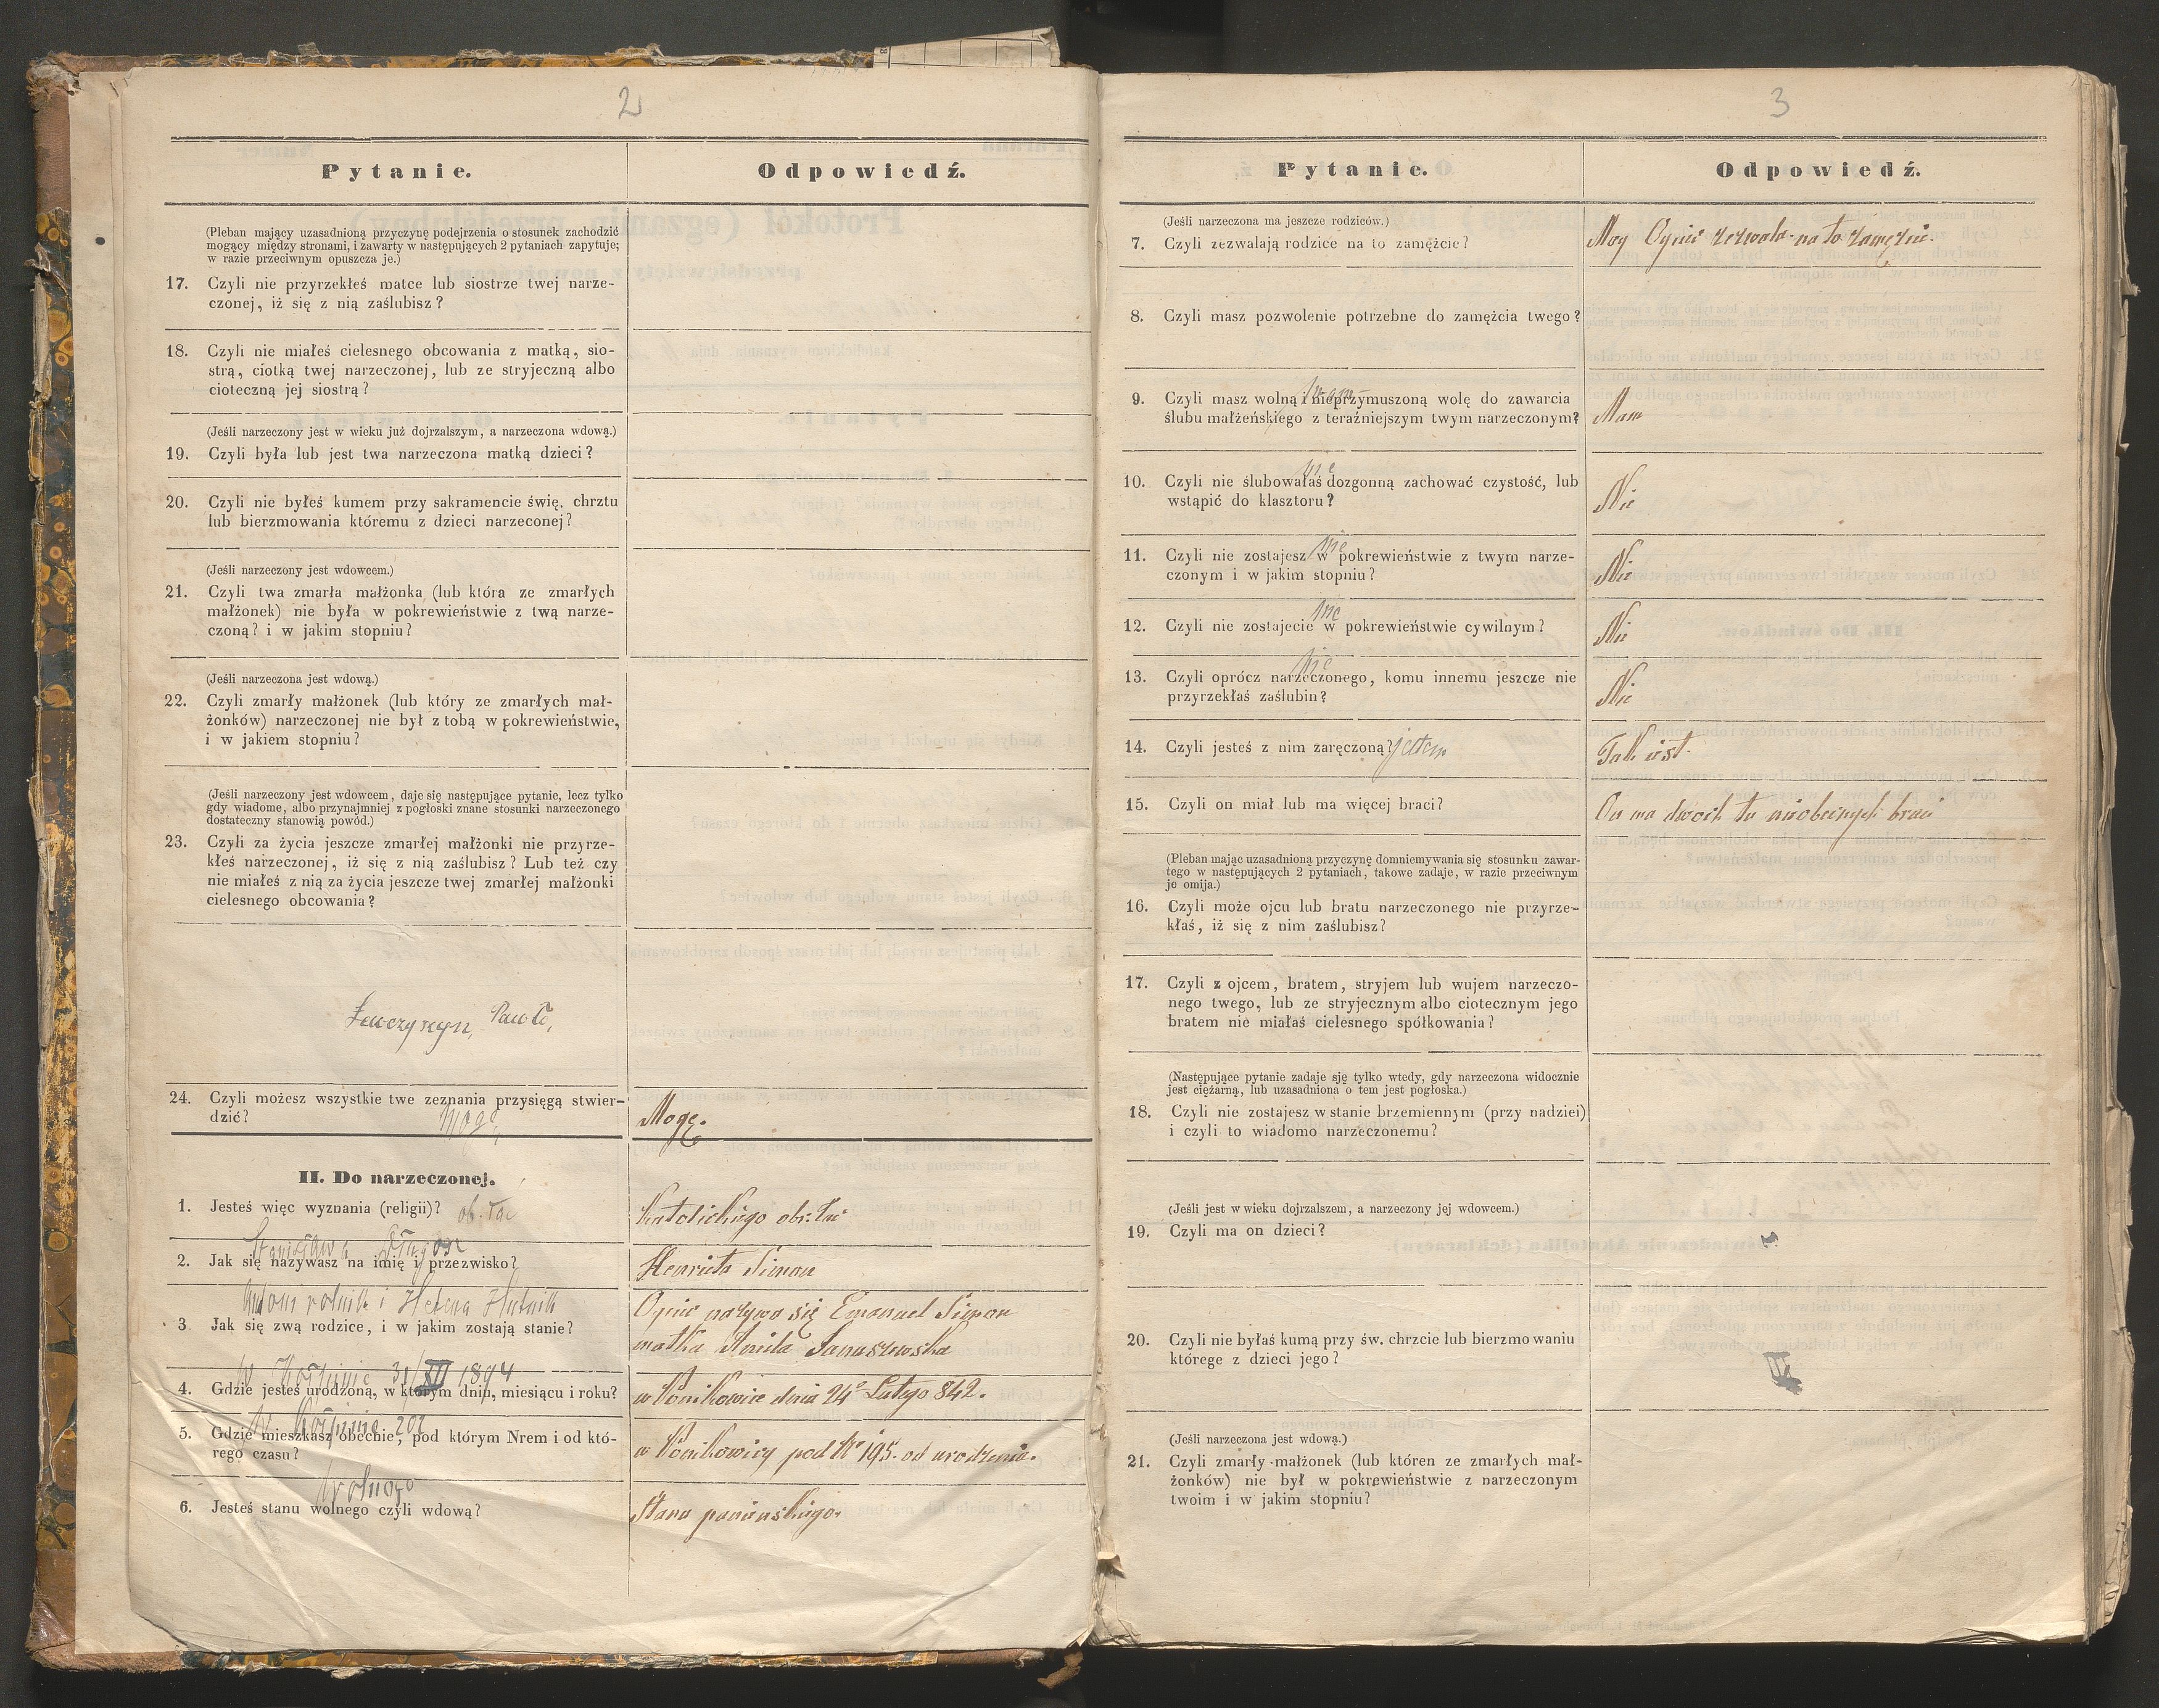 2
Pytanie. Odpowiedź.
(Pleban mający uzasadnioną przyczynę podejrzenia o stosunek zachodzić
mogący między stronami, i zawarty w następujących 2 pytaniach zapytuje;
w razie przeciwnym opuszcza je.)
17. Czyli nie przyrzekłeś matce lub siostrze twej narze-
czonej, iż się z nią zaślubisz?
18. Czyli nie miałeś cielesnego obcowania z matką, sio-
strą, ciotką twej narzeczonej, lub ze stryjeczną albo
cioteczną jej siostrą?
(Jeśli narzeczony jest w wieku już dojrzalszym, a narzeczona wdową.)
19. Czyli była lub jest twa narzeczona matką dzieci?
20. Czyli nie byłeś kumem przy sakramencie święˌ chrztu
lub bierzmowania któremu z dzieci narzeconej?
(Jeśli narzeczony jest wdowcem.)
21. Czyli twa zmarła małżonka (lub która ze zmarłych
małżonek) nie była w pokrewieństwie z twą narze-
czoną? i w jakim stopniu?
(Jeśli narzeczona jest wdową.)
22. Czyli zmarły małżonek (lub który ze zmarłych mał-
żonków) narzeczonej nie był z tobą w pokrewieństwie,
i w jakiem stopniu?
(Jeśli narzeczony jest wdowcem, daje się następujące pytanie, lecz tylko
gdy wiadome, albo przynajmniej z pogłoski znane stosunki narzeczonego
dostateczny stanowią powód.)
23. Czyli za życia jeszcze zmarłej małżonki nie przyrze-
kłeś narzeczonej, iż się z nią zaślubisz? Lub też czy
nie miałeś z nią za życia jeszcze twej zmarłej małżonki
cielesnego obcowania?
24. Czyli możesz wszystkie twe zeznania przysięgą stwier-
dzić? Mogę. Mogę.
II. Do narzeczonej.
1. Jesteś więc wyznania (religii)? ob. łac Katolickiego obr. łać
Stanisława Długosz
2. Jak się nazywasz na imię i przezwisko? Henrieta Simon
Antoni rolnik i Helena Hutnik
3 Jak się zwą rodzice, i w jakim zostają stanie? Ojciec nazywa się Emanuel Simon
matka Amila Januszewska
31/XII 1894
4. Gdzie jesteś urodzoną, w którym dniu, miesiącu i roku? w Ponikowice dnia 24º Lutego 842.
5. Gdzie mieszkasz obecnie, pod którym Nrem i od któ-
rego czasu? w Ponikowicy pod Nº 195. od urodzenia.
Wolnego
6. Jesteś stanu wolnego czyli wdową? Stanu panieńskiego.
3
Pytanie. Odpowiedź.
(Jeśli narzeczona ma jeszcze rodziców.)
7. Czyli zezwalają rodzice na to zamężcie? Moy Oyciec zezwala na to zamężcie.
8. Czyli masz pozwolenie potrzebne do zamężcia twego?
mam
9. Czyli masz wolną i nieprzymuszoną wolę do zawarcia
ślubu małżeńskiego z teraźniejszym twym narzeczonym? Mam
nie
10. Czyli nie ślubowałaś dozgonną zachować czystość, lub
wstąpić do klasztoru? Nie
nie
11. Czyli nie zostajesz w pokrewieństwie z twym narze-
czonym i w jakim stopniu? Nie
nie
12. Czyli nie zostajecie w pokrewieństwie cywilnym? Nie
nie
13. Czyli oprócz narzeczonego, komu innemu jeszcze nie
przyrzekłaś zaślubin? Nie
14. Czyli jesteś z nim zaręczoną? jestem Tak jest.
15. Czyli on miał lub ma więcej braci? On ma dwoch tu nieobecnych braci
(Pleban mając uzasadnioną przyczynę domniemywania się stosunku zawar-
tego w następujących 2 pytaniach, takowe zadaje, w razie przeciwnym
je omija.)
16. Czyli może ojcu lub bratu narzeczonego nie przyrze-
kłaś, iż się z nim zaślubisz?
17. Czyli z ojcem, bratem, stryjem lub wujem narzeczo-
nego twego, lub ze stryjecznym albo ciotecznym jego
bratem nie miałaś cielesnego spółkowania?
(Następujące pytanie zadaje sję tylko wtedy, gdy narzeczona widocznie
jest ciężarną, lub uzasadniona o tem jest pogłoska.)
18. Czyli nie zostajesz w stanie brzemiennym (przy nadziei)
i czyli to wiadomo narzeczonemu?
(Jeśli jest w wieku dojrzalszem, a narzeczony jej wdowcem.)
19. Czyli ma on dzieci?
20. Czyli nie byłaś kumą przy św. chrzcie lub bierzmowaniu
którege z dzieci jego?
(Jeśli narzeczona jest wdową.)
21. Czyli zmarły małżonek (lub któren ze zmarłych mał-
żonków) nie był w pokrewieństwie z narzeczonym
twoim i w jakim stopniu?